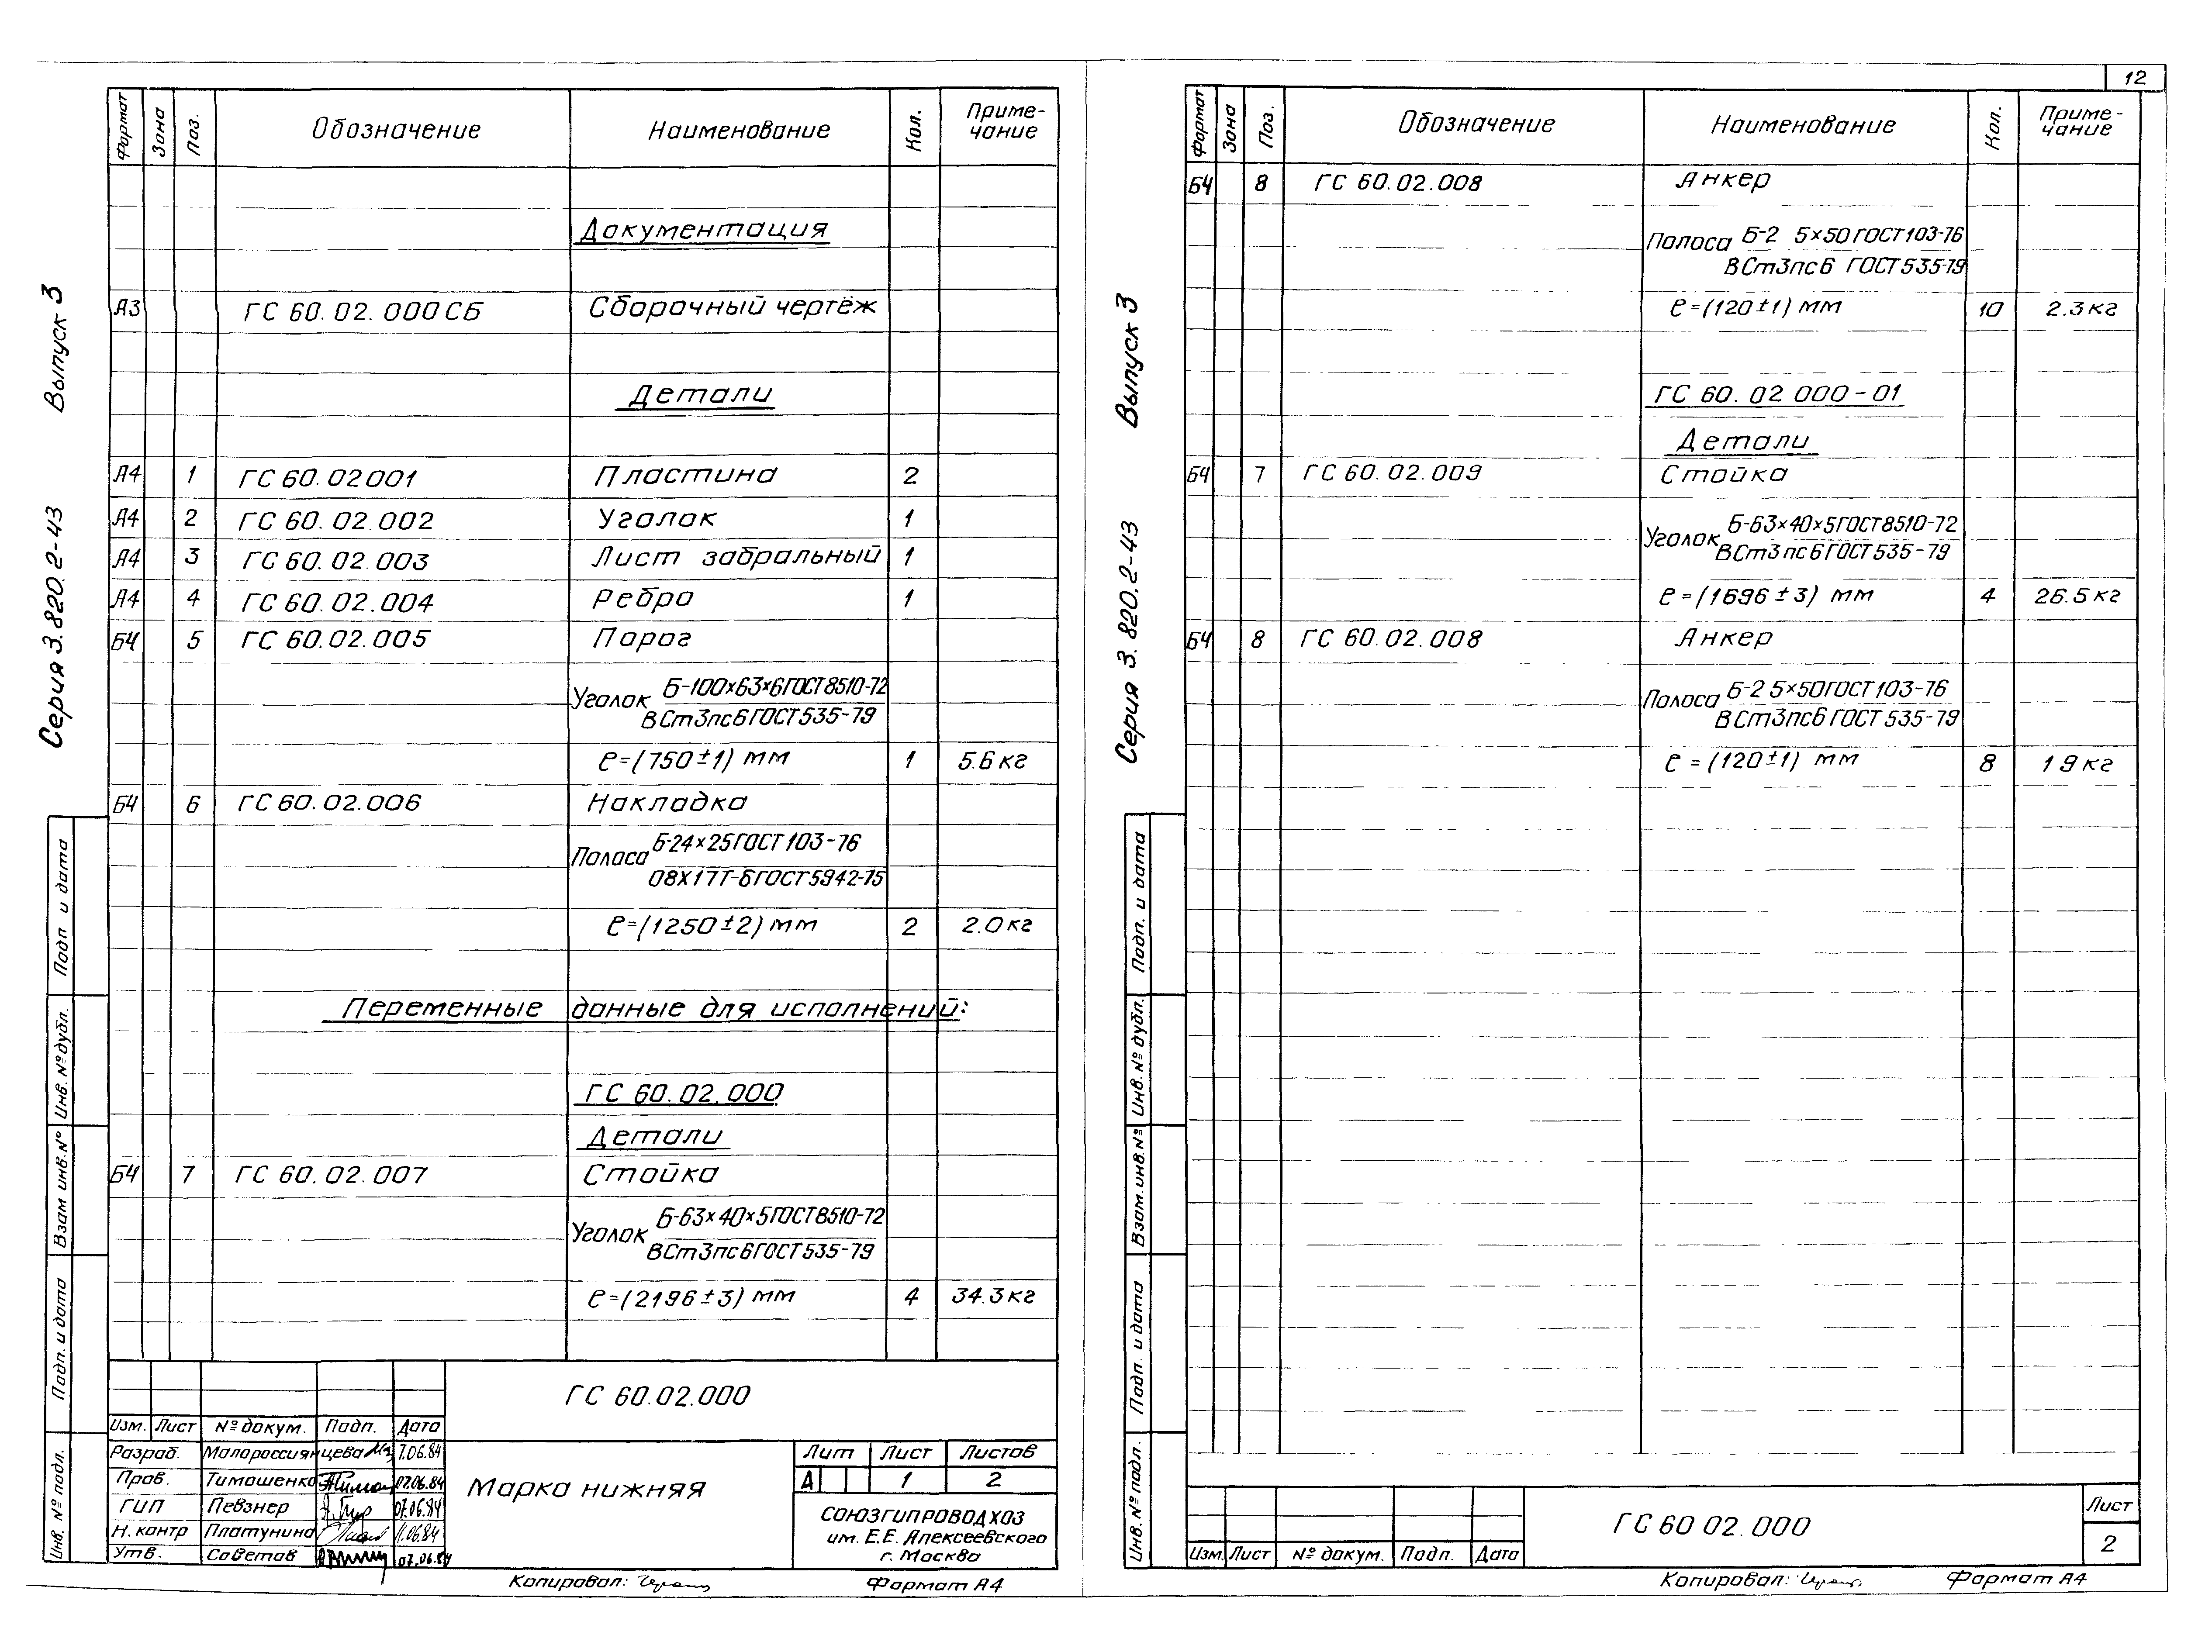 12
Формат Зона Поз. Обозначение Наименование Кол. Приме-
чание
Документация
А3 ГС 60.02.000СБ Сборочный чертёж
Детали
А4 1 ГС 60.02001 Пластина 2
А4 2 ГС 60.02.002 Уголок 1
А4 3 ГС 60.02.003 Лист забральный 1
А4 4 ГС 60.02.004 Ребро 1
БЧ 5 ГС 60.02.005 Порог
Уголок Б-100×63×6 ГОСТ 8510-72
ВСт3пс6 ГОСТ 535-79
ℓ=(750±1) мм 1 5.6 кг
БЧ 6 ГС 60.02.006 Накладка
Полоса Б-24×25 ГОСТ 103-76
08Х17Т-б ГОСТ 5942-75
ℓ=(1250±2) мм 2 2.0 кг
Переменные данные для исполнений:
ГС 60.02.000
Детали
БЧ 7 ГС 60.02.007 Стойка
Уголок Б-63×40×5 ГОСТ 8510-72
ВСт3пс6 ГОСТ 535-79
ℓ=(2196±3) мм 4 34.3 кг
Серия 3.820.2-43 Выпуск 3
Подп и дата
Инв. № дубл.
Взам инв. №
Подп. и дата
Инв. № подл.
ГС 60.02.000
Изм. Лист № докум. Подп. Дата
Разраб. Малороссиянцева 7.06.84
Пров. Тимошенко 07.06.84
ГИП Певзнер 07.06.84
Н. контр Платунина 1.06.84
Утв. Советов 07.06.84
Марка нижняя
Лит Лист Листов
А 1 2
СОЮЗГИПРОВОДХОЗ
им. Е.Е. Алексеевского
г. Москва
Копировал: Формат А4
Формат Зона Поз. Обозначение Наименование Кол. Приме-
чание
БЧ 8 ГС 60.02.008 Анкер
Полоса Б-2 5×50 ГОСТ 103-76
ВСт3пс6 ГОСТ 535-79
ℓ=(120±1) мм 10 2.3 кг
ГС 60.02 000-01
Детали
БЧ 7 ГС 60.02.009 Стойка
Уголок Б-63×40×5 ГОСТ 8510-72
ВСт3пс6 ГОСТ 535-79
ℓ=(1696±3) мм 4 26.5 кг
БЧ 8 ГС 60.02.008 Анкер
Полоса Б-2 5×50 ГОСТ 103-76
ВСт3пс6 ГОСТ 535-79
ℓ=(120±1) мм 8 1 9 кг
Серия 3.820.2-43 Выпуск 3
Подп. и дата
Инв. № дубл.
Взам. инв. №
Подп. и дата
Инв. № подл.
Изм. Лист № докум. Подп. Дата
ГС 60 02.000
Лист
2
Копировал: Формат А4